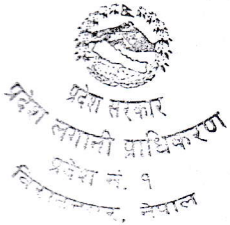 प्रदेश सरकार
प्रदेश लगानी प्राधिकरण
प्रदेश नं. १
विराटनगर, नेपाल